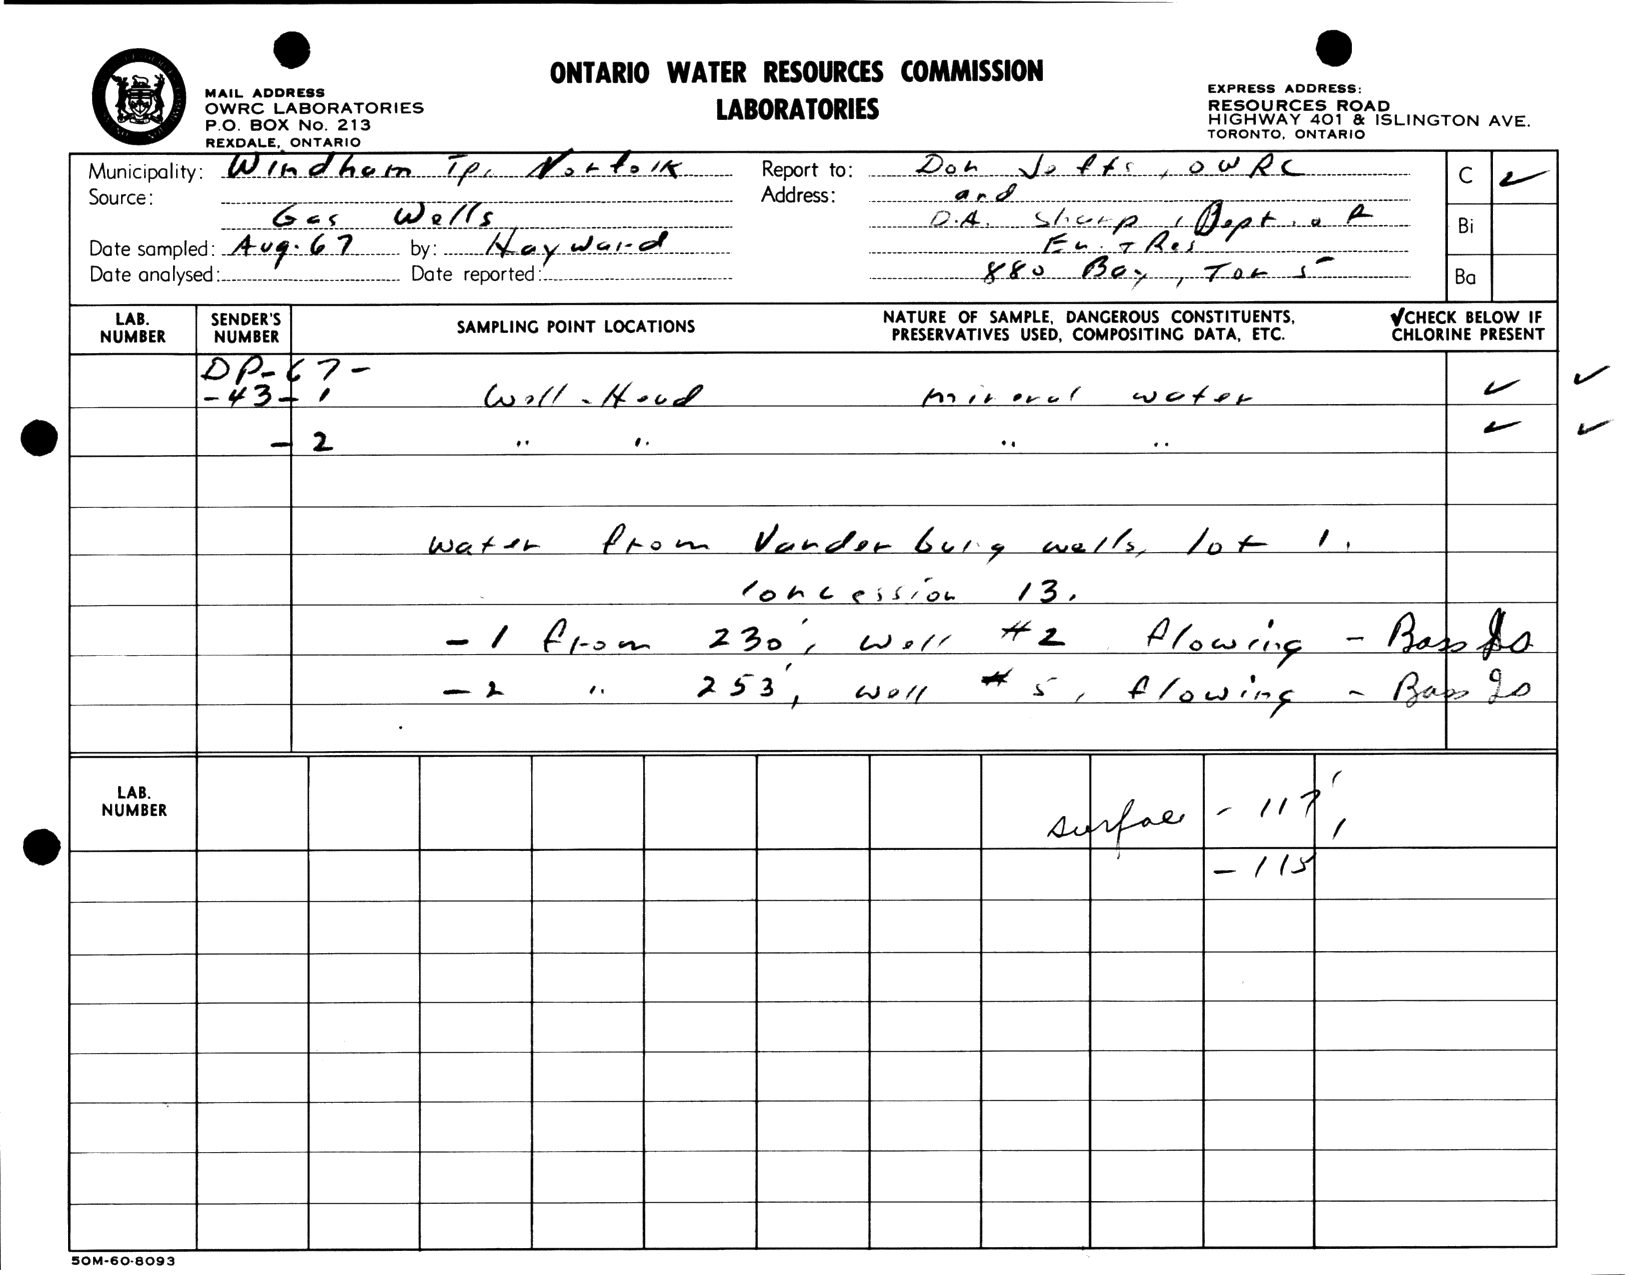 ONTARIO WATER RESOURCES COMMISSION
LABORATORIES
MAIL ADDRESS
OWRC LABORATORIES
P.O. BOX No. 213
REXDALE, ONTARIO
EXPRESS ADDRESS:
RESOURCES ROAD
HIGHWAY 401 & ISLINGTON AVE.
TORONTO, ONTARIO
Municipality: Windham Tp. Norfolk
Source:
Gas Wells
Date sampled: Aug. 67 by: Hayward
Date analysed: Date reported:
Report to: Don Jeffs, OWRC
Address: and
D.A. Sharp, Dept. of
En. + Res
880 Bay, Tor 5
C ✓
Bi
Ba
LAB. NUMBER
SENDER'S NUMBER
SAMPLING POINT LOCATIONS
NATURE OF SAMPLE, DANGEROUS CONSTITUENTS,
PRESERVATIVES USED, COMPOSITING DATA, ETC.
✓CHECK BELOW IF
CHLORINE PRESENT
DP-67-
-43-1 Well-Head mineral water ✓ ✓
-2 " " " " ✓ ✓
water from Vanderburg wells, lot 1.
concession 13.
-1 from 230', well #2 flowing - Bass Is
-2 " 253', well #5, flowing - Bass Is
LAB.
NUMBER
surface - 117',
- 115
50M-60-8093